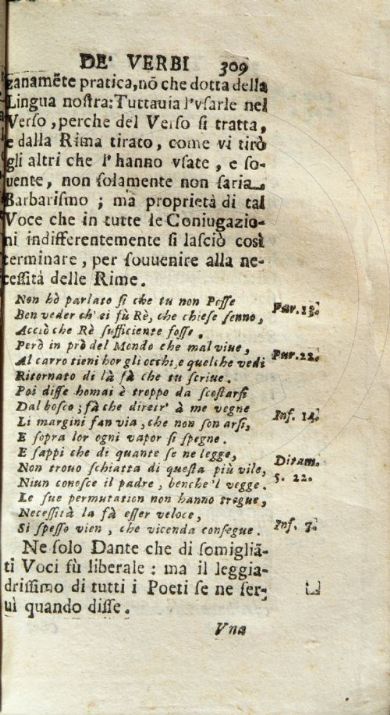 DE' VERBI 309
zanamẽte pratica, nõ che dotta della
Lingua noſtra: Tuttauia l'vſarle nel
Verſo, perche del Verſo ſi tratta,
e dalla Rima tirato, come vi tirò
gli altri che l'hanno vſate, e ſo-
uente, non ſolamente non ſaria
Barbariſmo; ma proprietà di tal
Voce che in tutte le Coniugazio-
ni indifferentemente ſi laſciò così
terminare, per ſouuenire alla ne-
ceſſità delle Rime.
Non hò parlato ſì che tu non Poſſe
Ben veder ch' ei fù Rè, che chieſe ſenno, Par. 13.
Acciò che Rè ſufficiente foſſe.
Però in prò del Mondo che mal viue,
Al carro tieni hor gli occhi, e quel che vedi Pur. 22.
Ritornato di là fà che tu ſcriue.
Poi diſſe homai è troppo da ſcoſtarſi
Dal boſco; fà che dietr' à me vegne
Li margini fan via, che non ſon arſi, Inf. 14.
E ſopra lor ogni vapor ſi ſpegne.
E ſappi che di quante ſe ne legge,
Non trouo ſchiatta di queſta più vile, Ditam.
Niun conoſce il padre, benche'l vegge. 5. 22.
Le ſue permutation non hanno tregue,
Neceſſità la fà eſſer veloce,
Sì ſpeſſo vien, che vicenda conſegue. Inf. 7.
Ne ſolo Dante che di ſomigliã-
ti Voci fù liberale: ma il leggia-
driſſimo di tutti i Poeti ſe ne ſer-
uì quando diſſe.
Vna